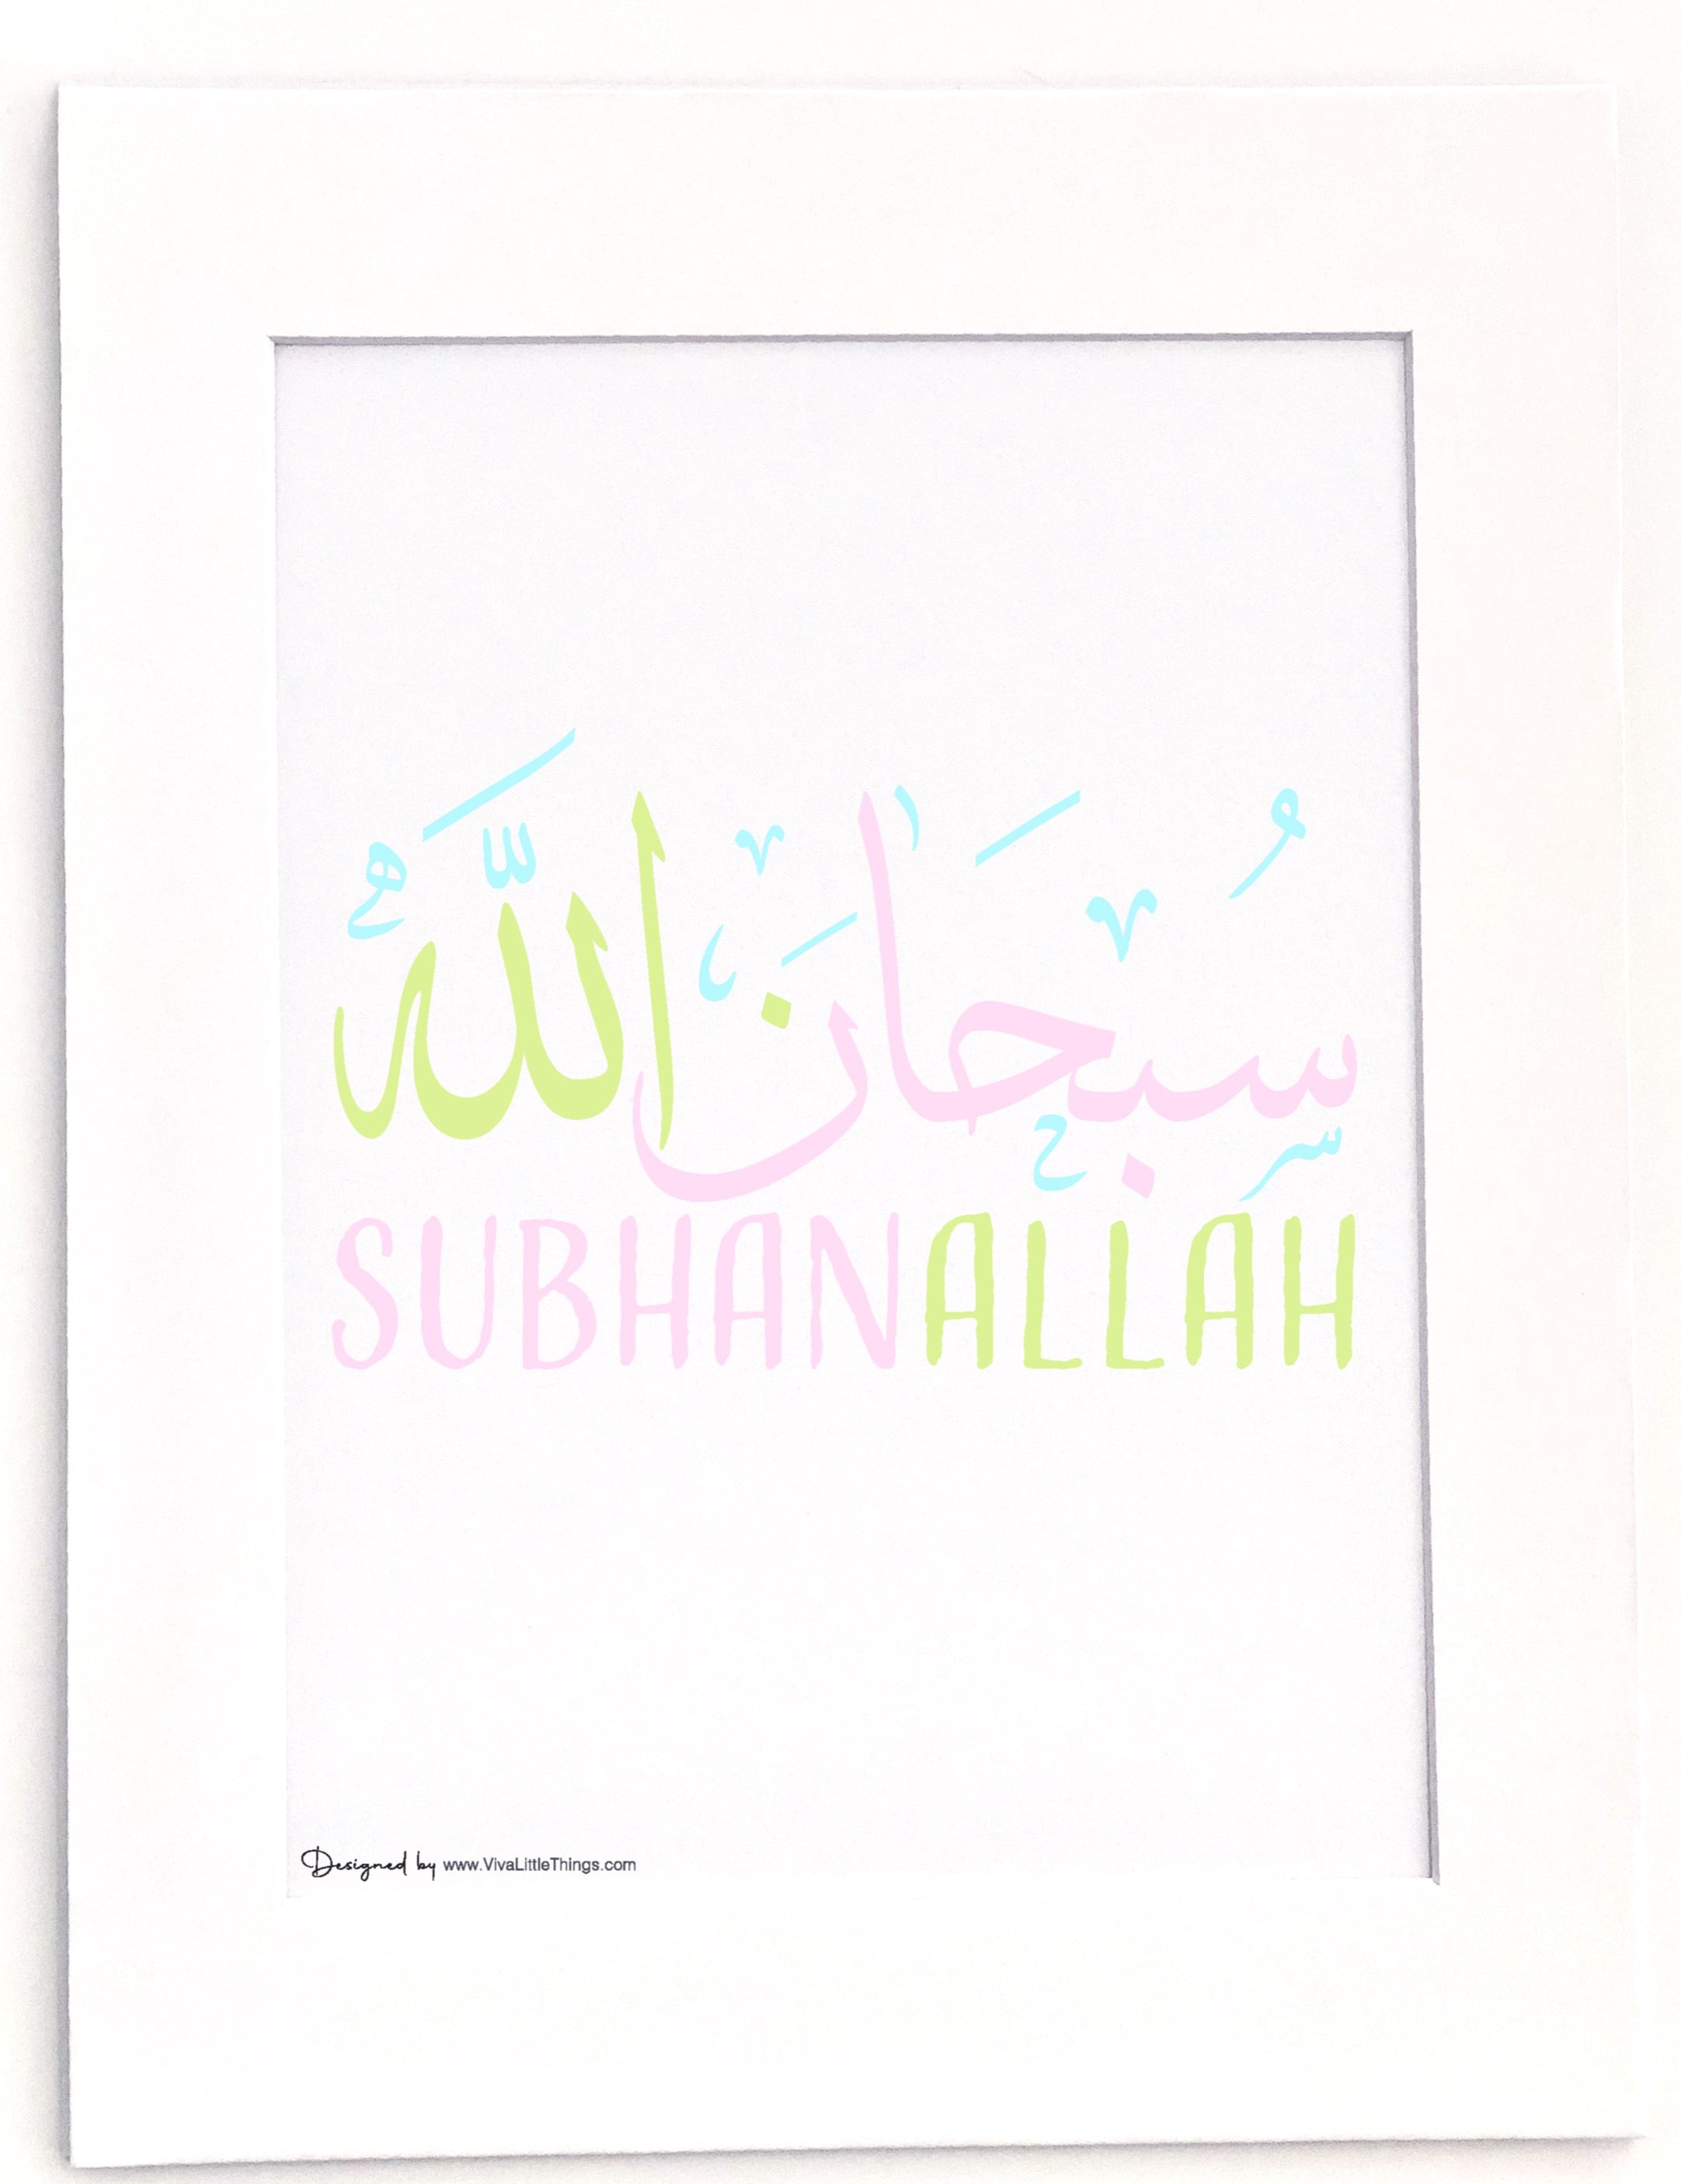 سُبْحَانَ اللَّه
SUBHANALLAH
Designed by www.VivaLittleThings.com